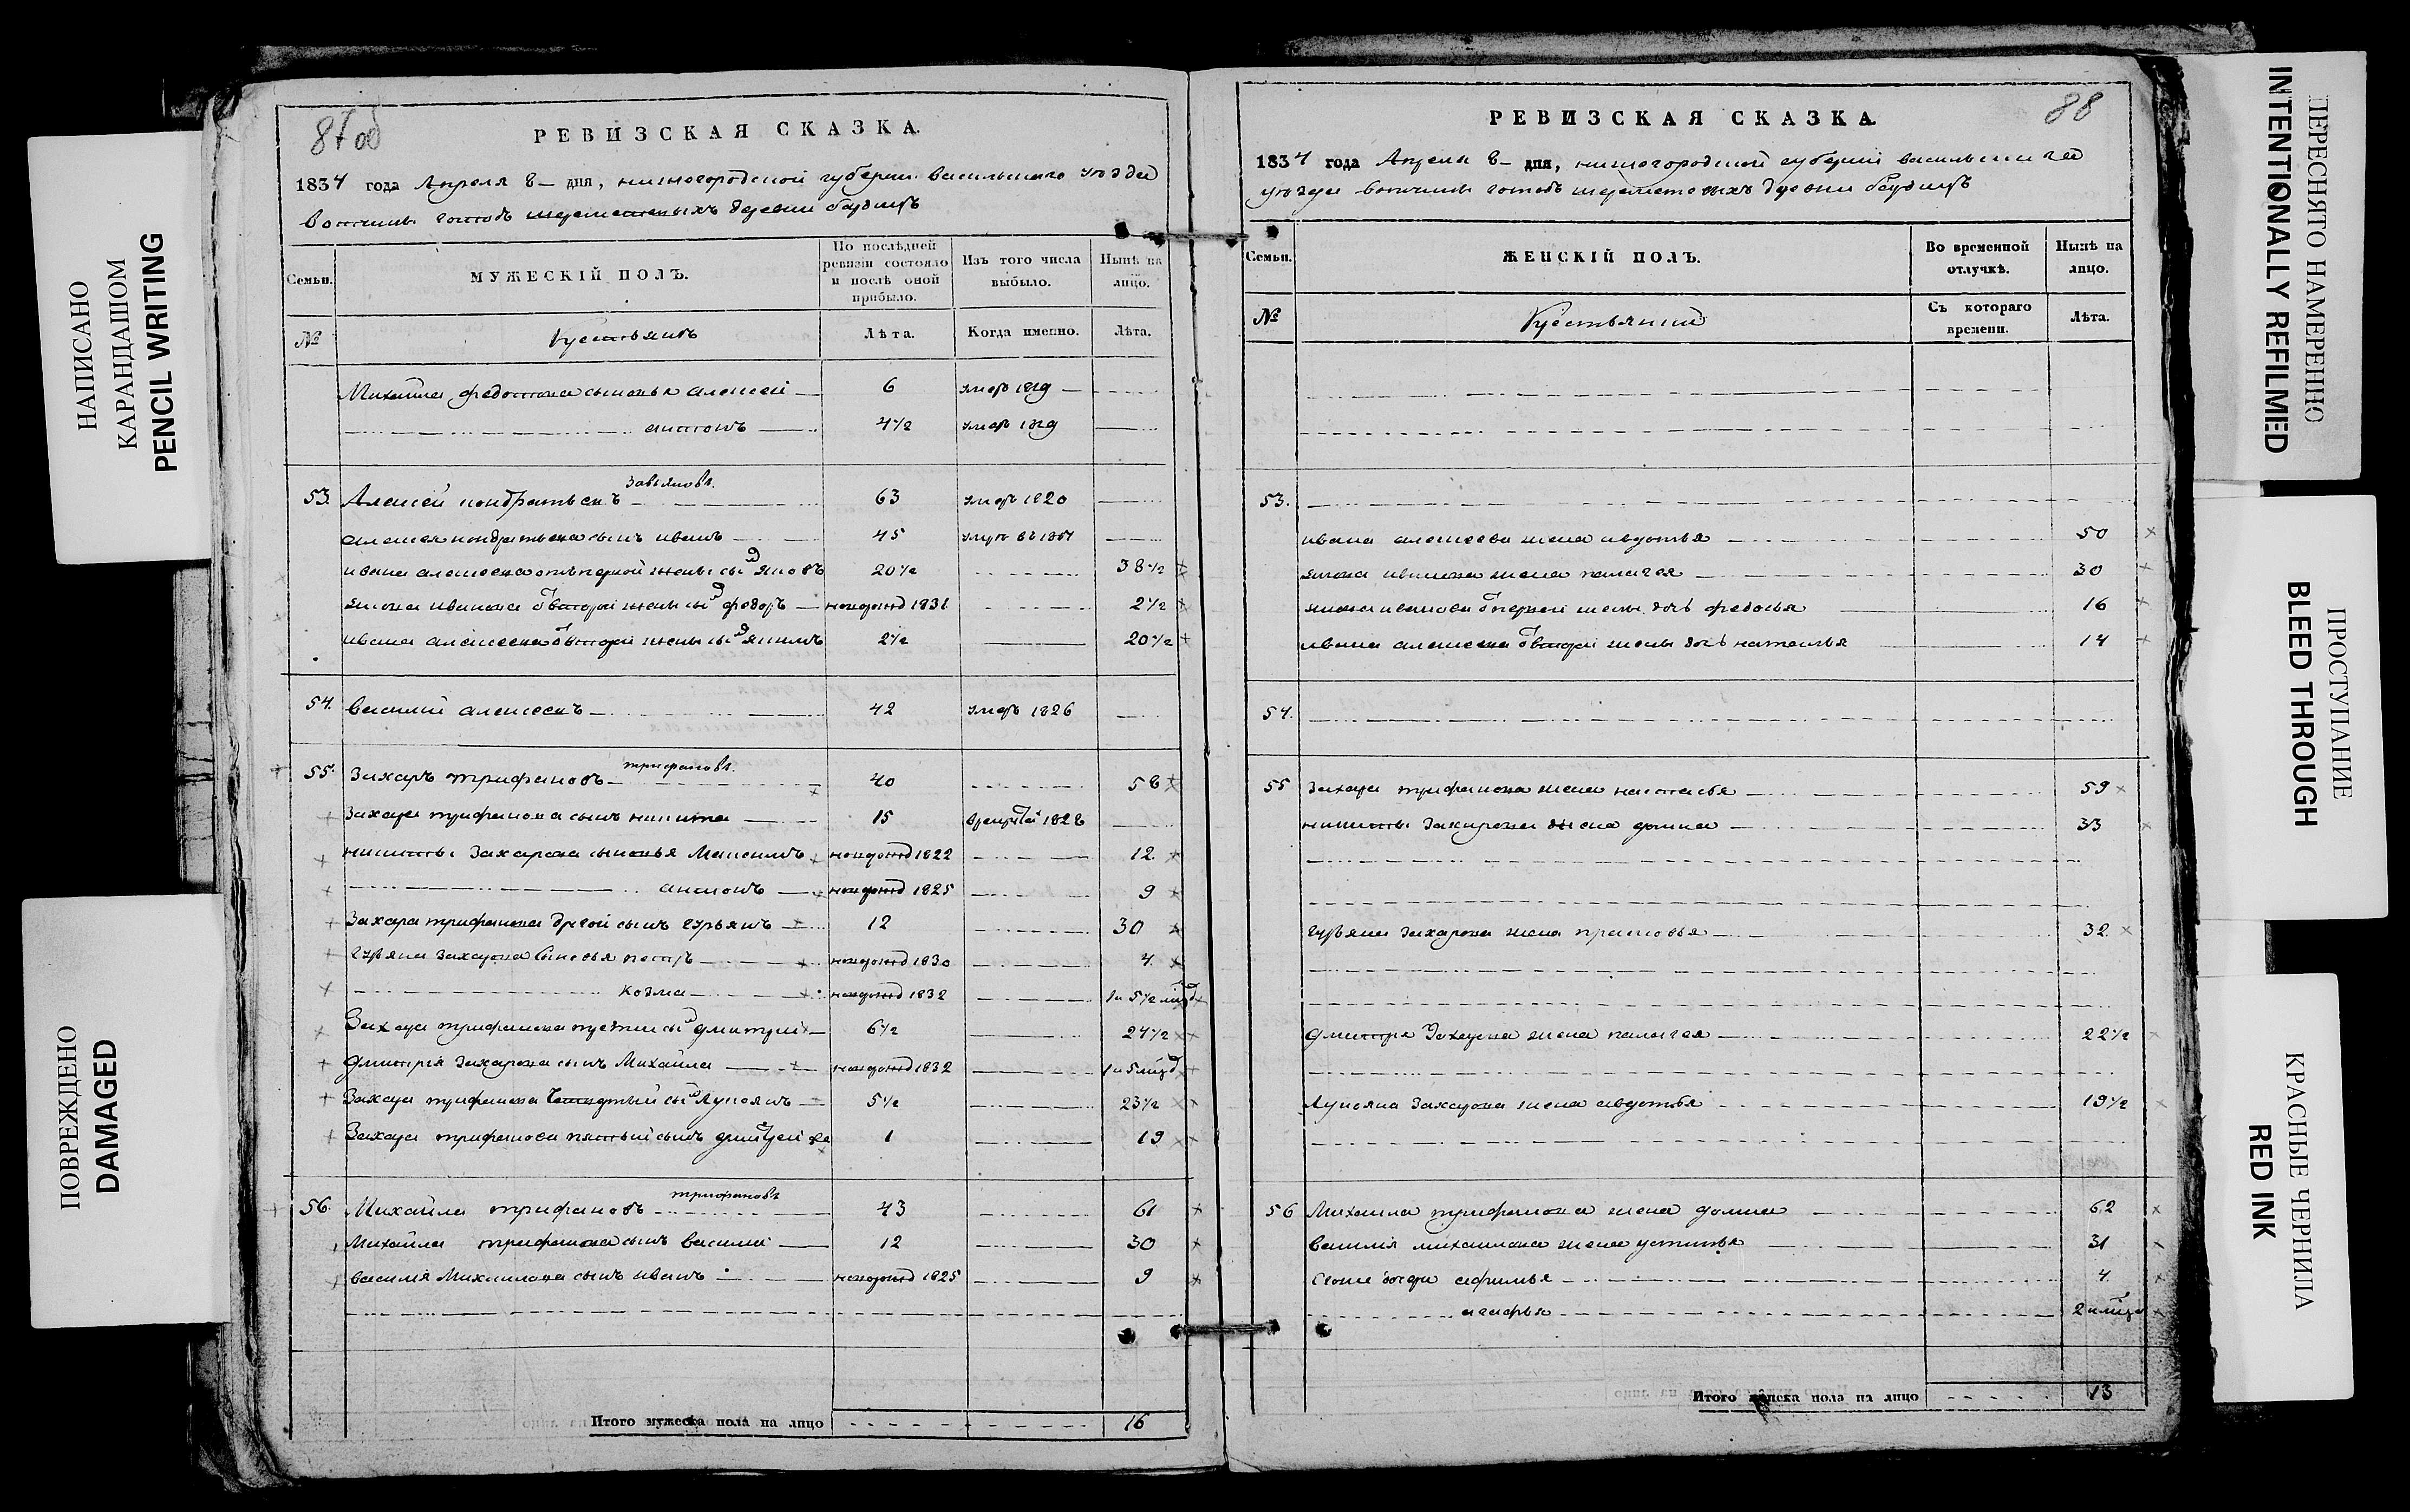 НАПИСАНО
КАРАНДАШОМ
PENCIL WRITING
ПОВРЕЖДЕНО
DAMAGED
87об
РЕВИЗСКАЯ СКАЗКА.
1834 года Апреля 8 – дня, нижегородской губернии васильскаго уезда
вотчины деревни
Семьи.
МУЖЕСКІЙ ПОЛЪ.
По послѣдней ревизіи состояло и послѣ оной прибыло.
Изъ того числа выбыло.
Нынѣ на лицо.
№
Крестьянъ
Лѣта.
Когда именно.
Лѣта.
Михаила федотова сыновья алексей 6 умер 1829
антонъ 4½ умер 1829
Завьяловъ.
53. Алексей кондратьевъ 63 умеръ 1820
алексея кондратьева сынъ иванъ 45
ивана алексеева первой жены сынъ яковъ 20½ 38½
якова иванова от второй жены сынъ федоръ новорожд 1831 2½
ивана алексеева от второй жены сынъ якимъ 2½ 20½
54. василий алексеевъ 42 умеръ 1826
трифановъ.
55. Захаръ трифановъ 40 58
Захара трифанова сынъ никита 15 1828
никиты Захарова сыновья Максимъ новорожд 1822 12
новорожд 1825 9
Захара трифанова другой сынъ гурьянъ 12 30
гурьяна Захарова сыновья петръ новорожд 1830 4
козма новорожд 1832
Захара трифанова третий сынъ дмитрий 6½ 24½
дмитрия Захарова сынъ Михаила новорожд 1832
Захара трифанова четвертый сынъ Лукоянъ 5½ 23½
Захара трифанова пятый сынъ дмитрей же 1 19
трифановъ
56. Михаила трифановъ 43 61
Михаила трифанова сынъ василий 12 30
василия Михаилова сынъ иванъ новорожд 1825 9
Итого мужеска пола на лицо 16
88
РЕВИЗСКАЯ СКАЗКА
1834 года Апреля 8 – дня, нижегородской губернии васильскаго
уезда вотчины деревни
Семьи.
ЖЕНСКІЙ ПОЛЪ.
Во временной отлучкѣ.
Нынѣ на лицо.
№
Крестьянъ
Съ котораго времени.
Лѣта.
53.
ивана алексеева жена авдотья 50
якова иванова жена палагея 30
якова иванова от первой жены дочь федосья 16
ивана алексеева от второй жены дочь наталья 14
54.
55 Захара трифанова жена настасья 59
никиты Захарова жена домна 33
гурьяна Захарова жена прасковья 32
дмитрия Захарова жена палагея 22½
Лукояна Захарова жена авдотья 19½
56 Михаила трифанова жена домна 62
василия михаилова жена устинья 31
дочери афимья 4
Итого женска пола на лицо 13
ПЕРЕСНЯТО НАМЕРЕННО
INTENTIONALLY REFILMED
ПРОСТУПАНИЕ
BLEED THROUGH
КРАСНЫЕ ЧЕРНИЛА
RED INK